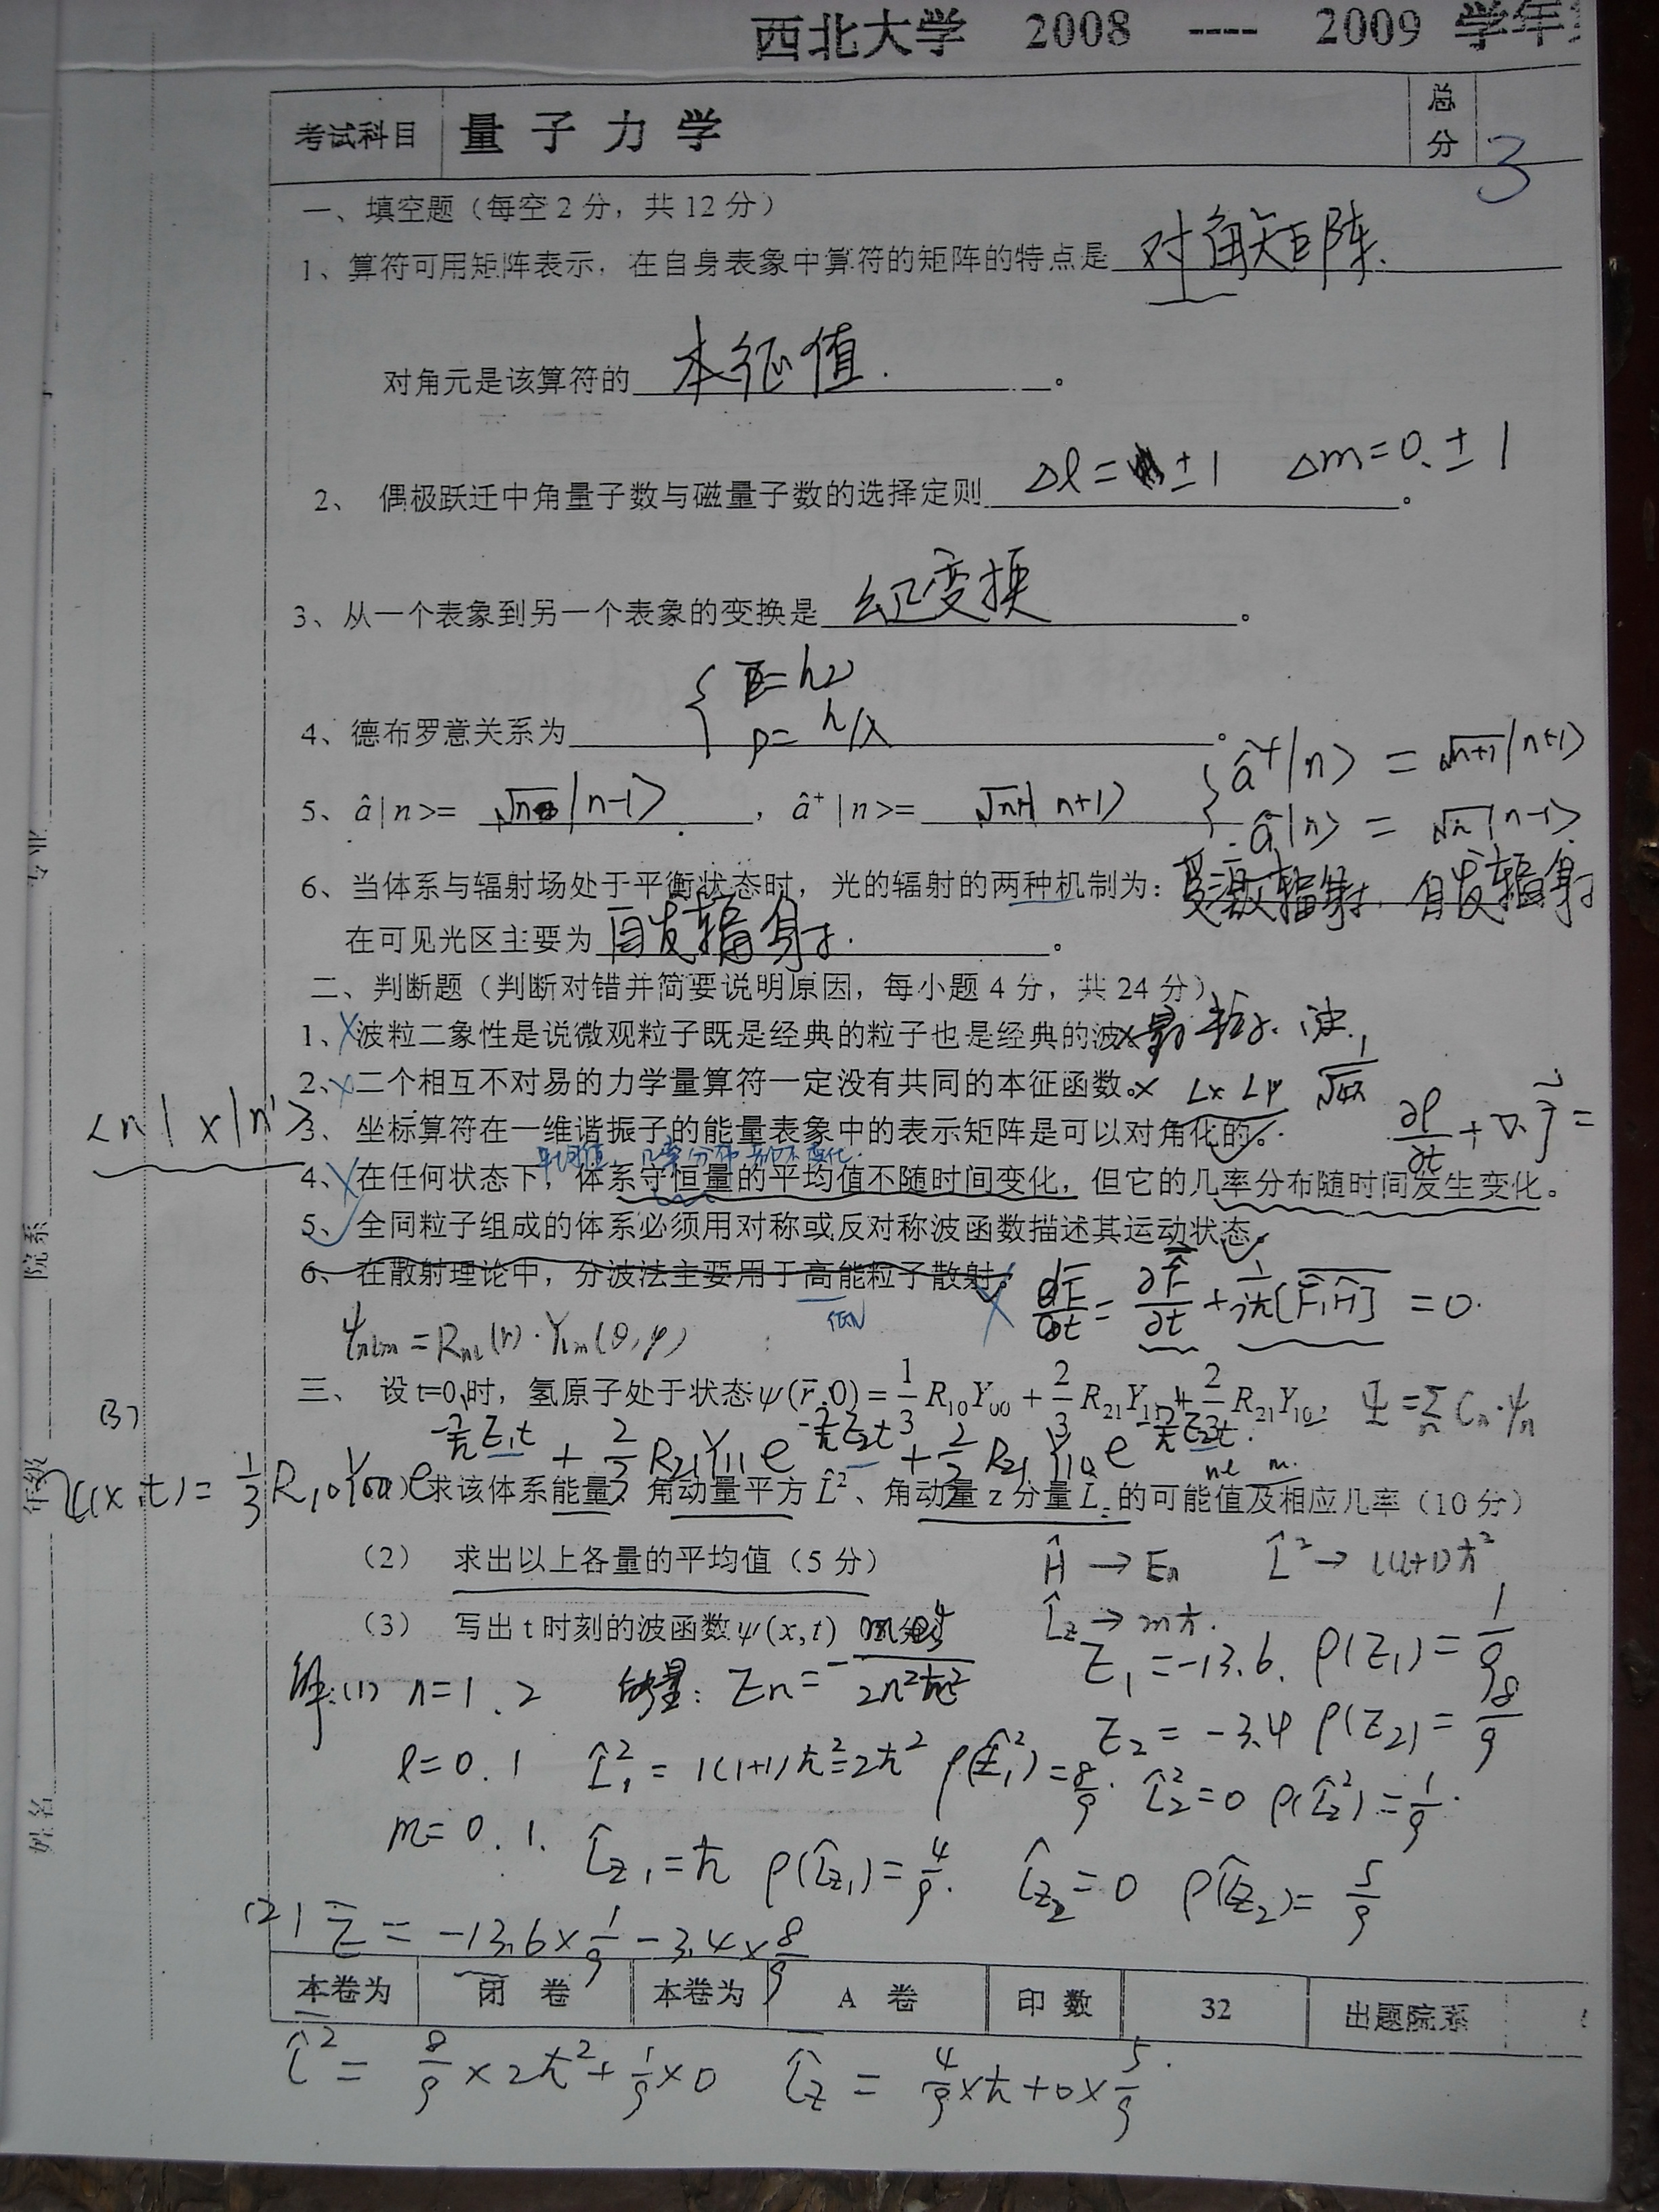 西北大学 2008 ---- 2009 学年
考试科目 量 子 力 学 总分 3
一、填空题（每空2分，共12分）
1、算符可用矩阵表示，在自身表象中算符的矩阵的特点是 对角矩阵.
对角元是该算符的 本征值. 。
2、 偶极跃迁中角量子数与磁量子数的选择定则 Δl = ±1 Δm=0.±1 。
3、从一个表象到另一个表象的变换是 幺正变换 。
4、德布罗意关系为 { E=hν p=h/λ 。
5、â|n>= √n |n-1> ， â⁺|n>= √n+1 |n+1>
{ â⁺|n> = √n+1 |n+1>
â|n> = √n |n-1>
6、当体系与辐射场处于平衡状态时，光的辐射的两种机制为： 受激辐射. 自发辐射
在可见光区主要为 自发辐射. 。
二、判断题（判断对错并简要说明原因，每小题4分，共24分）
1、×波粒二象性是说微观粒子既是经典的粒子也是经典的波。× 粒子. 波.
2、×二个相互不对易的力学量算符一定没有共同的本征函数。×
<n|x|n'>
3、坐标算符在一维谐振子的能量表象中的表示矩阵是可以对角化的。
∂ρ/∂t + ∇·J =
平均值，几率分布都不变化.
4、×在任何状态下，体系守恒量的平均值不随时间变化，但它的几率分布随时间发生变化。
5、✓全同粒子组成的体系必须用对称或反对称波函数描述其运动状态。
6、在散射理论中，分波法主要用于高能粒子散射。×
低
dF/dt = ∂F/∂t + 1/iħ [F̂,Ĥ] = 0.
ψnlm = Rnl(r)·Ylm(θ,φ)
三、 设t=0时，氢原子处于状态ψ(r,0) = 1/3 R₁₀Y₀₀ + 2/3 R₂₁Y₁₁ + 2/3 R₂₁Y₁₀,
Ψ = Σ Cn·ψn
(3)
ψ(x,t) = 1/3 R₁₀Y₀₀ e^(-i/ħ E₁t) + 2/3 R₂₁Y₁₁ e^(-i/ħ E₂t) + 2/3 R₂₁Y₁₀ e^(-i/ħ E₂t).
求该体系能量、角动量平方L̂²、角动量z分量L̂z的可能值及相应几率（10分）
（2） 求出以上各量的平均值（5分）
Ĥ → En L̂² → l(l+1)ħ²
（3） 写出t时刻的波函数ψ(x,t)
L̂z → mħ.
解:(1) n=1.2 能量: En = -
E₁ = -13.6. ρ(E₁) = 1/9
E₂ = -3.4 ρ(E₂) = 8/9
l=0.1 L̂₁² = 1(1+1)ħ²=2ħ² ρ(L̂₁²) = 8/9. L̂₂²=0 ρ(L̂₂²) = 1/9.
m=0.1. L̂z₁ = ħ ρ(L̂z₁) = 4/9. L̂z₂ = 0 ρ(L̂z₂) = 5/9
(2) E = -13.6×1/9 -3.4×8/9
本卷为 闭 卷 本卷为 A 卷 印 数 32 出题院系
L̂² = 8/9×2ħ²+1/9×0 L̂z = 4/9×ħ+0×5/9.
专业
院系
年级
姓名